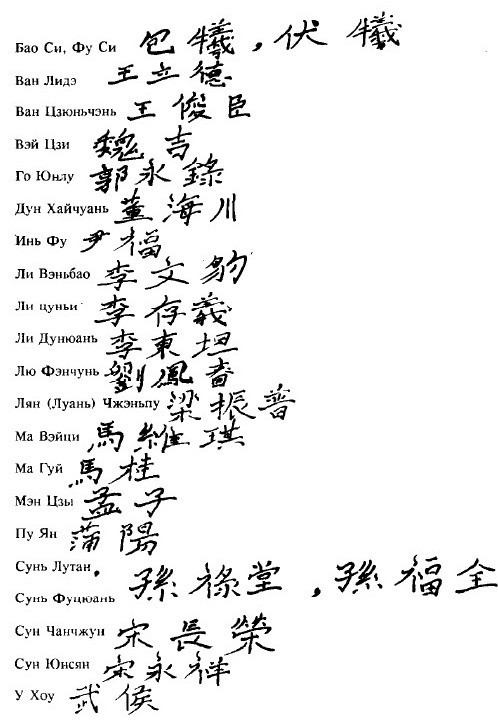 Бао Си, Фу Си 包犧，伏犧
Ван Лидэ 王立德
Ван Цзюньчэнь 王俊臣
Вэй Цзи 魏吉
Го Юнлу 郭永錄
Дун Хайчуань 董海川
Инь Фу 尹福
Ли Вэньбао 李文豹
Ли цуньи 李存義
Ли Дунюань 李東垣
Лю Фэнчунь 劉鳳春
Лян (Луань) Чжэньпу 梁振普
Ма Вэйци 馬維琪
Ма Гуй 馬桂
Мэн Цзы 孟子
Пу Ян 蒲陽
Сунь Лутан,
Сунь Фуцюань 孫祿堂，孫福全
Сун Чанчжун 宋長榮
Сун Юнсян 宋永祥
У Хоу 武侯